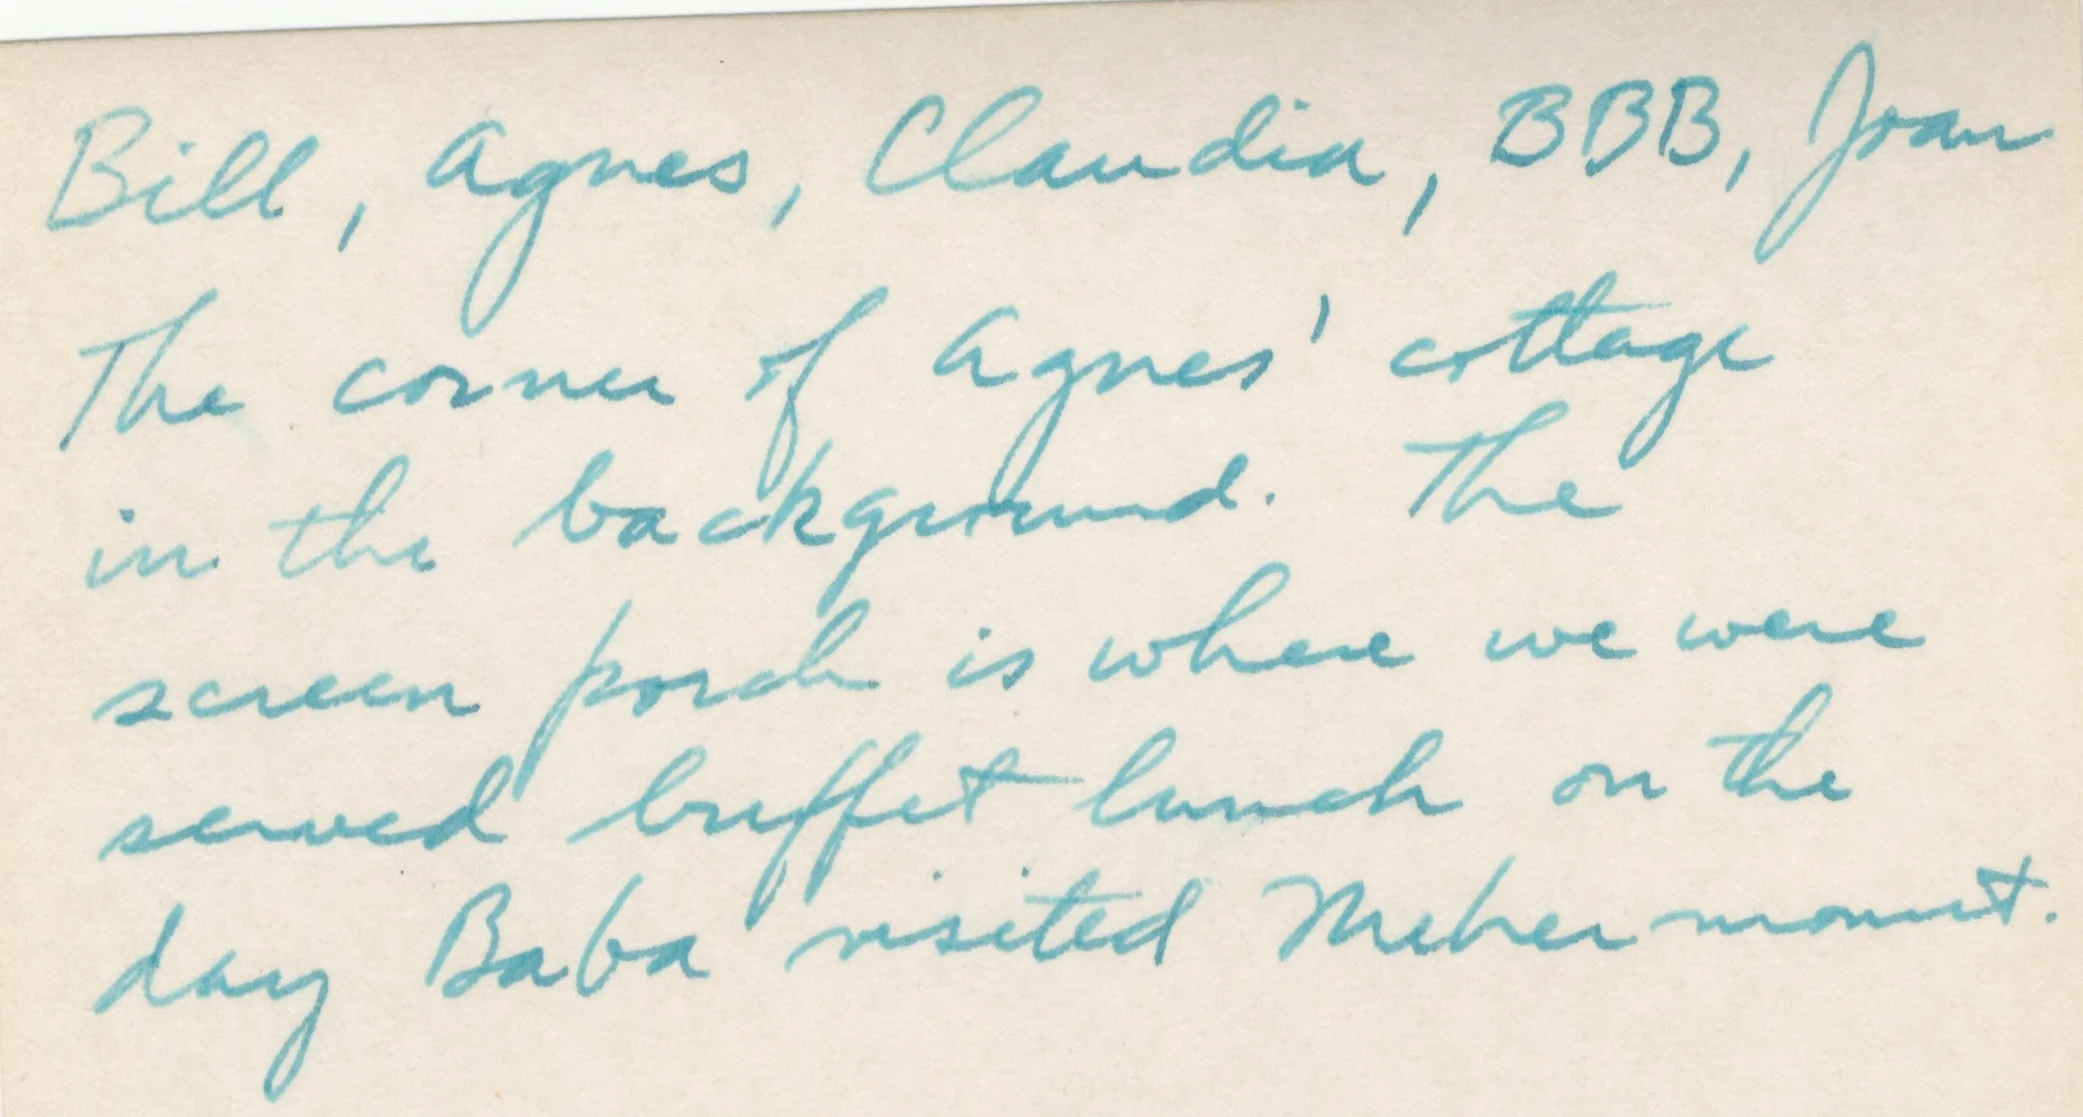 Bill, Agnes, Claudia, BBB, Joan
The corner of Agnes' cottage
in the background. The
screen porch is where we were
served buffet lunch on the
day Baba visited Meher mount.